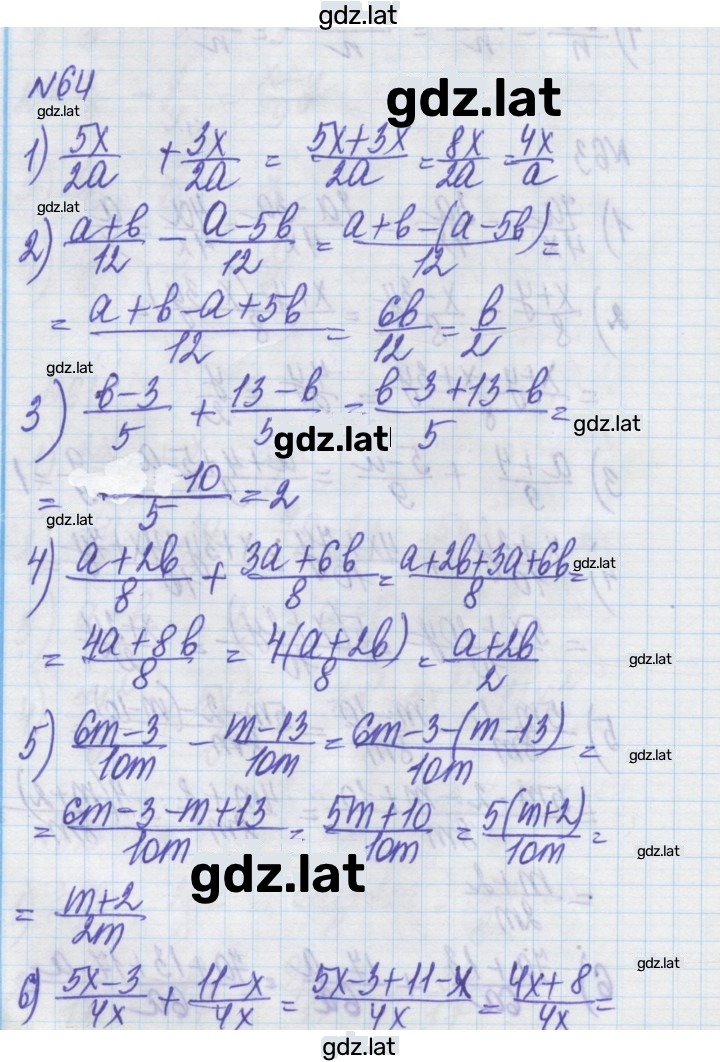 gdz.lat
N64
gdz.lat
gdz.lat
1) 5x/2a + 3x/2a = (5x+3x)/2a = 8x/2a = 4x/a
gdz.lat
2) (a+b)/12 - (a-5b)/12 = (a+b-(a-5b))/12 =
= (a+b-a+5b)/12 = 6b/12 = b/2
gdz.lat
3) (b-3)/5 + (13-b)/5 = (b-3+13-b)/5 =
gdz.lat
gdz.lat
= 10/5 = 2
gdz.lat
4) (a+2b)/8 + (3a+6b)/8 = (a+2b+3a+6b)/8 =
gdz.lat
= (4a+8b)/8 = 4(a+2b)/8 = (a+2b)/2
gdz.lat
5) (6m-3)/10m - (m-13)/10m = (6m-3-(m-13))/10m =
gdz.lat
= (6m-3-m+13)/10m = (5m+10)/10m = 5(m+2)/10m =
gdz.lat
gdz.lat
= (m+2)/2m
gdz.lat
6) (5x-3)/4x + (11-x)/4x = (5x-3+11-x)/4x = (4x+8)/4x =
gdz.lat